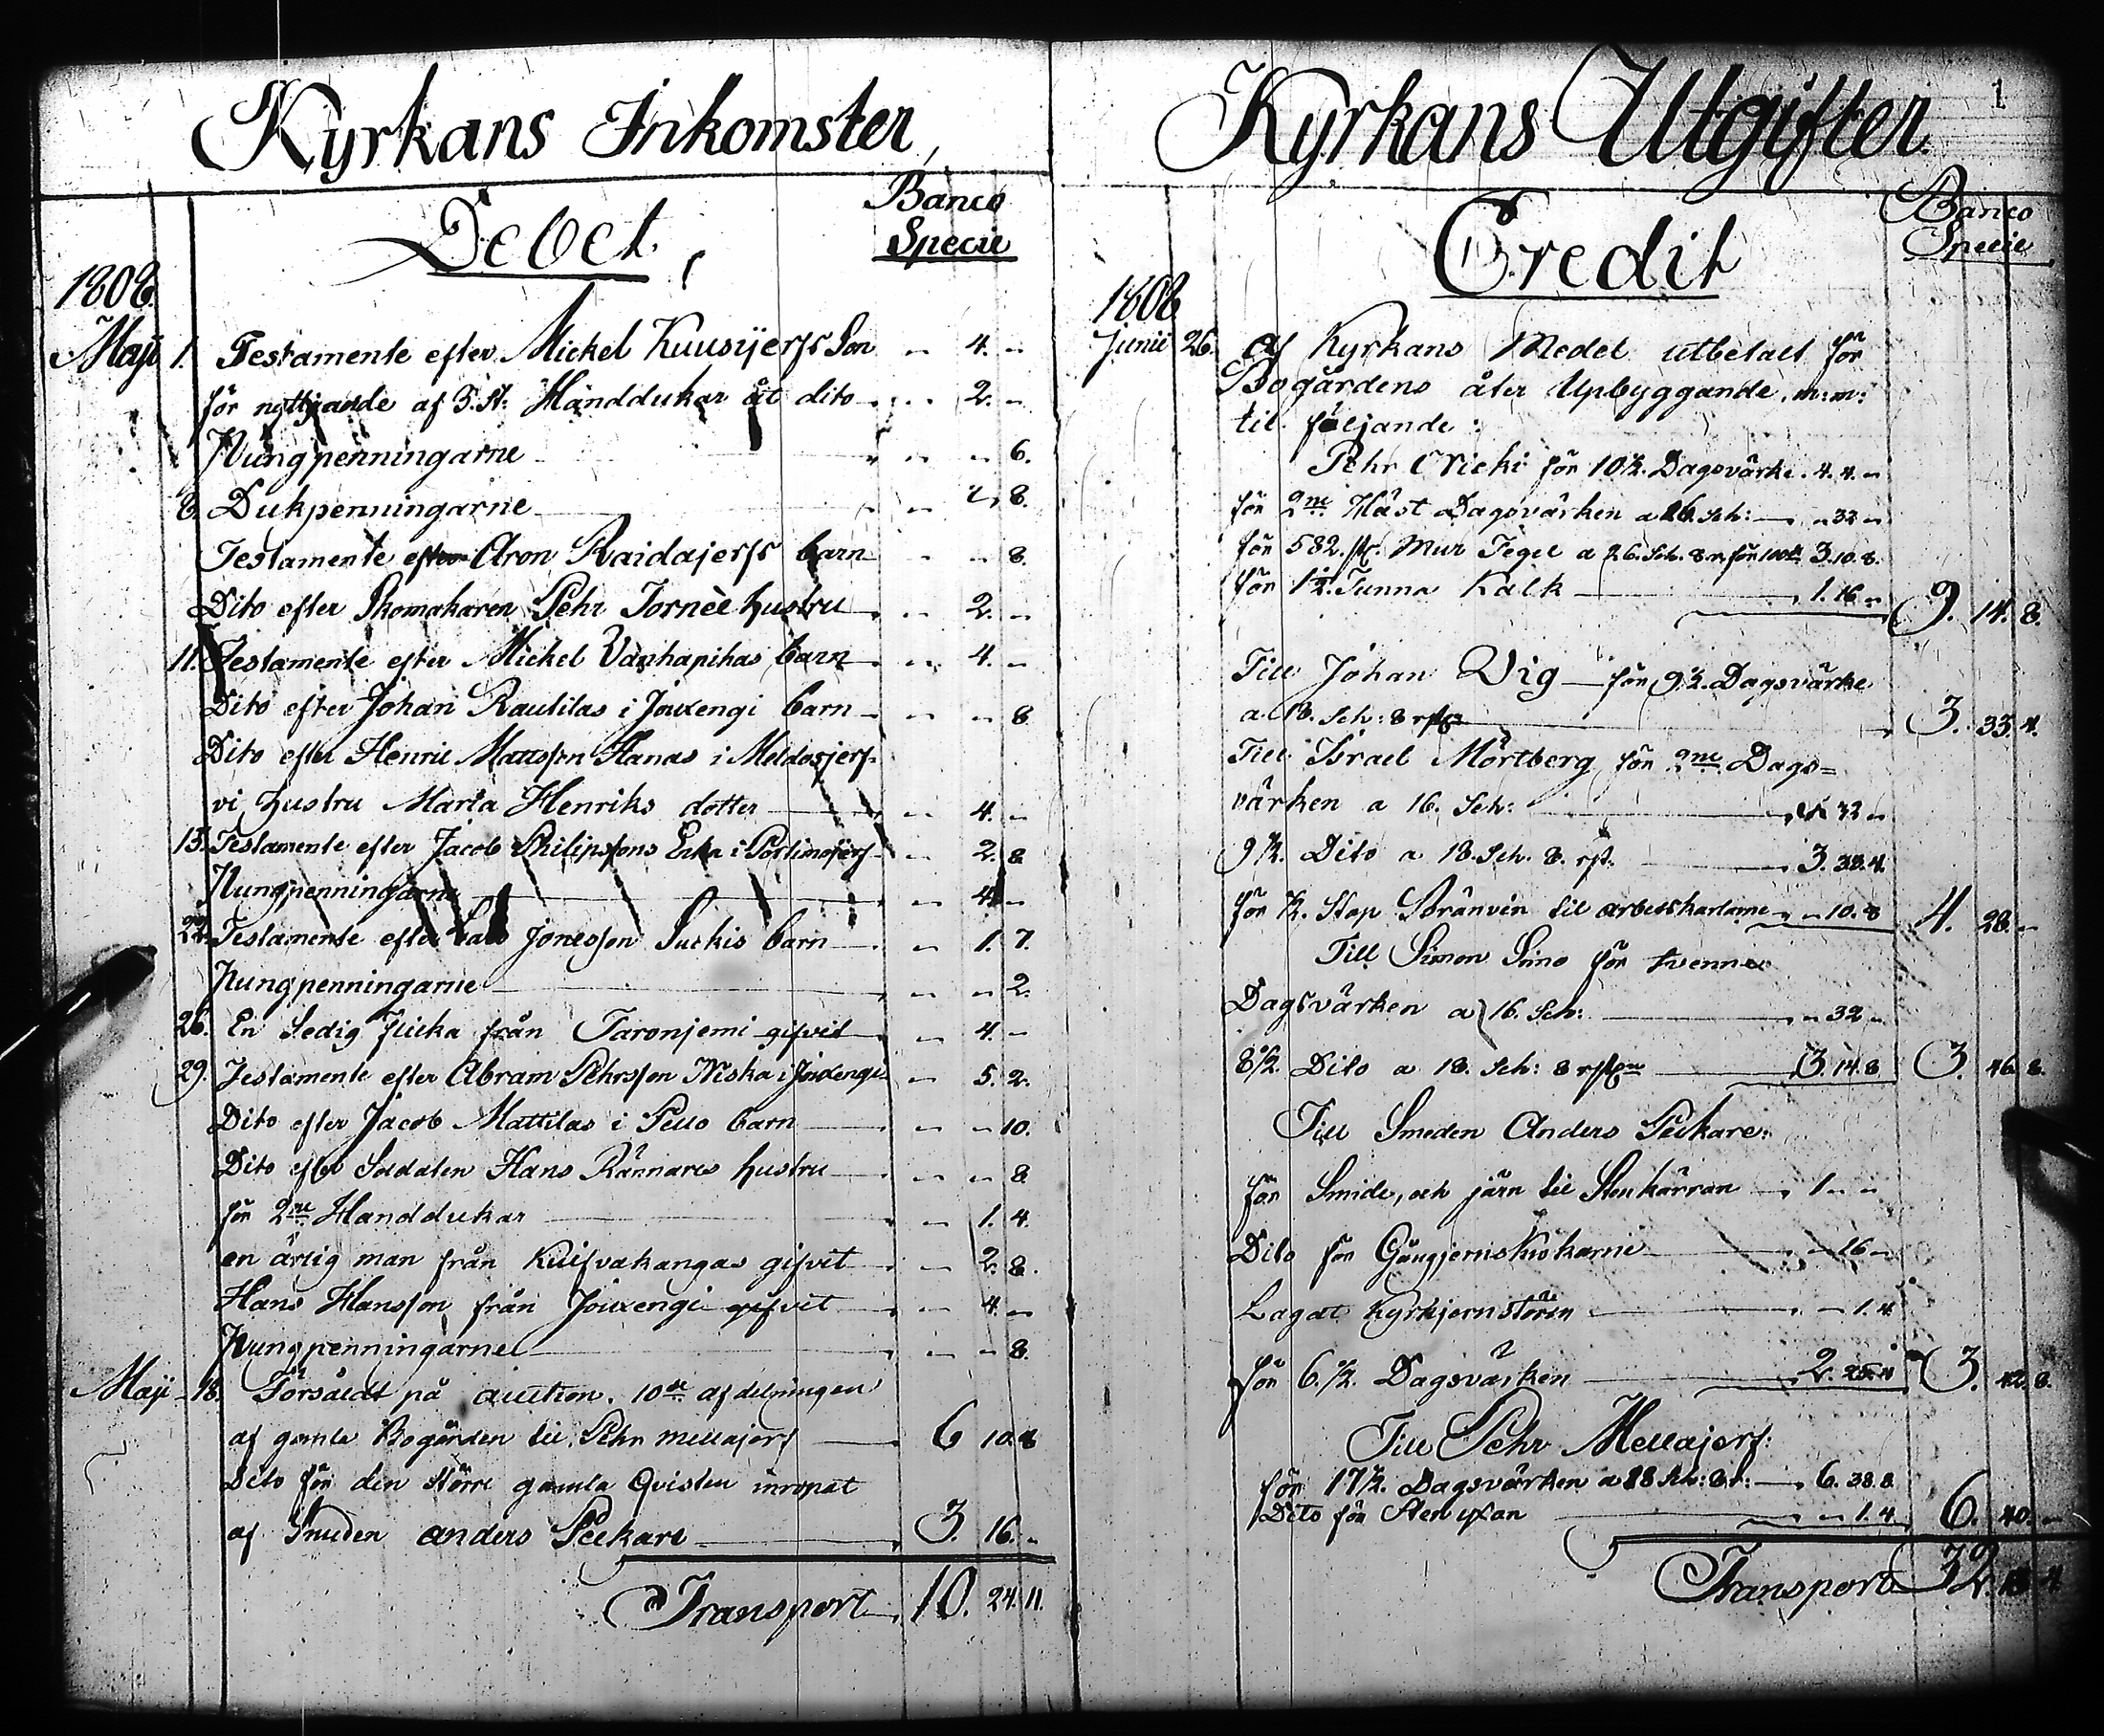 Kyrkans Inkomster,
Debet,
Banco
Specie
1808
Maji 1. Testamente efter Mickel Kuusijerfs Son " 4. "
för nyttjande af 3. st: Handdukar åt dito " 2. "
Pungpenningarne " " 6.
8. Dukpenningarne 8.
Testamente efter Aron Raidajerfs barn " " 8.
Dito efter Skomakaren Pehr Torneè hustru " 2. "
11. Testamente efter Mickel Vanhapihas barn " 4. "
Dito efter Johan Rautilas i Jouxengi barn " " 8.
Dito efter Henric Mattsson Hanas i Meldosjerf-
vi hustru Maria Henriks dotter " 4. "
15. Testamente efter Jacob Philipssons Enka i Portimojerf " 2. 8
Pungpenningarne " 4 "
22. Testamente efter Lars Jonesson Suckis barn " 1. 7.
Pungpenningarne " " 2.
26. En Ledig Picka från Taronjemi gifvit " 4. "
29. Testamente efter Abram Pehrsson Niska i Jouxengi " 5. 2.
Dito efter Jacob Mattilas i Pello barn " " 10.
Dito efter Soldaten Hans Rännares hustru " " 8
för 2ne Handdukar " 1. 4.
en ärlig man från Kuifvakangas gifvit " 2. 8.
Hans Hansson från Jouxengi gifvit " 4. "
Pungpenningarne " " 8.
Maji 18. Försåldt på auction. 10de afdelningen
af gamla Bogården til Pehr Mellajerf 6 10. 8
Dito för den större gamla Qvisten inropat
af Smeden Anders Peckare 3. 16. "
Transport 10. 24. 11.
Kyrkans Utgifter 1
Credit
Banco
Specie
1808
Junii 26. Af Kyrkans Medel utbetalt för
Bogårdens åter Upbyggande. m: m:
til följande:
Pehr Nicki för 10½. Dagsvärke. 4. 4. "
för 2ne Häst Dagsvärken a 16. Sch: " 32 "
för 582. st. Mur Tegel a 26. Sch. 8 r. för 100de 3. 10. 8.
för 1½. Tunna Kalk 1. 16 " 9. 14. 8.
Till Johan Vig för 9½. Dagsvärke
a. 18. Sch: 8 rst: 3. 33. 4.
Till Israel Mörtberg för 2ne Dags=
värken a 16. Sch: " 32 "
9½. Dito a 18. Sch. 8. rst. 3. 33. 4.
för ½. Stop Bränvin til arbetskarlarne " 10. 8 4. 28. "
Till Simon Simo för tvenne
Dagsvärken a 16. Sch: " 32 "
8½. Dito a 18. Sch: 8 rst 3. 14. 8 3. 46. 8.
Till Smeden Anders Peckare:
för Smide, och järn til Stenkärran 1 " "
Dito för Gångjernskrokarne " 16 "
Lagat Kyrkjernstören " 1. 4
för 6.½. Dagsvärken 2. 25. 4 3. 42. 8.
Till Pehr Mellajerf:
för 17½. Dagsvärken a 18 Sch: 8 r: 6. 38. 8
Dito för Sten yxan " 1. 4 6. 40. "
Transport 32.